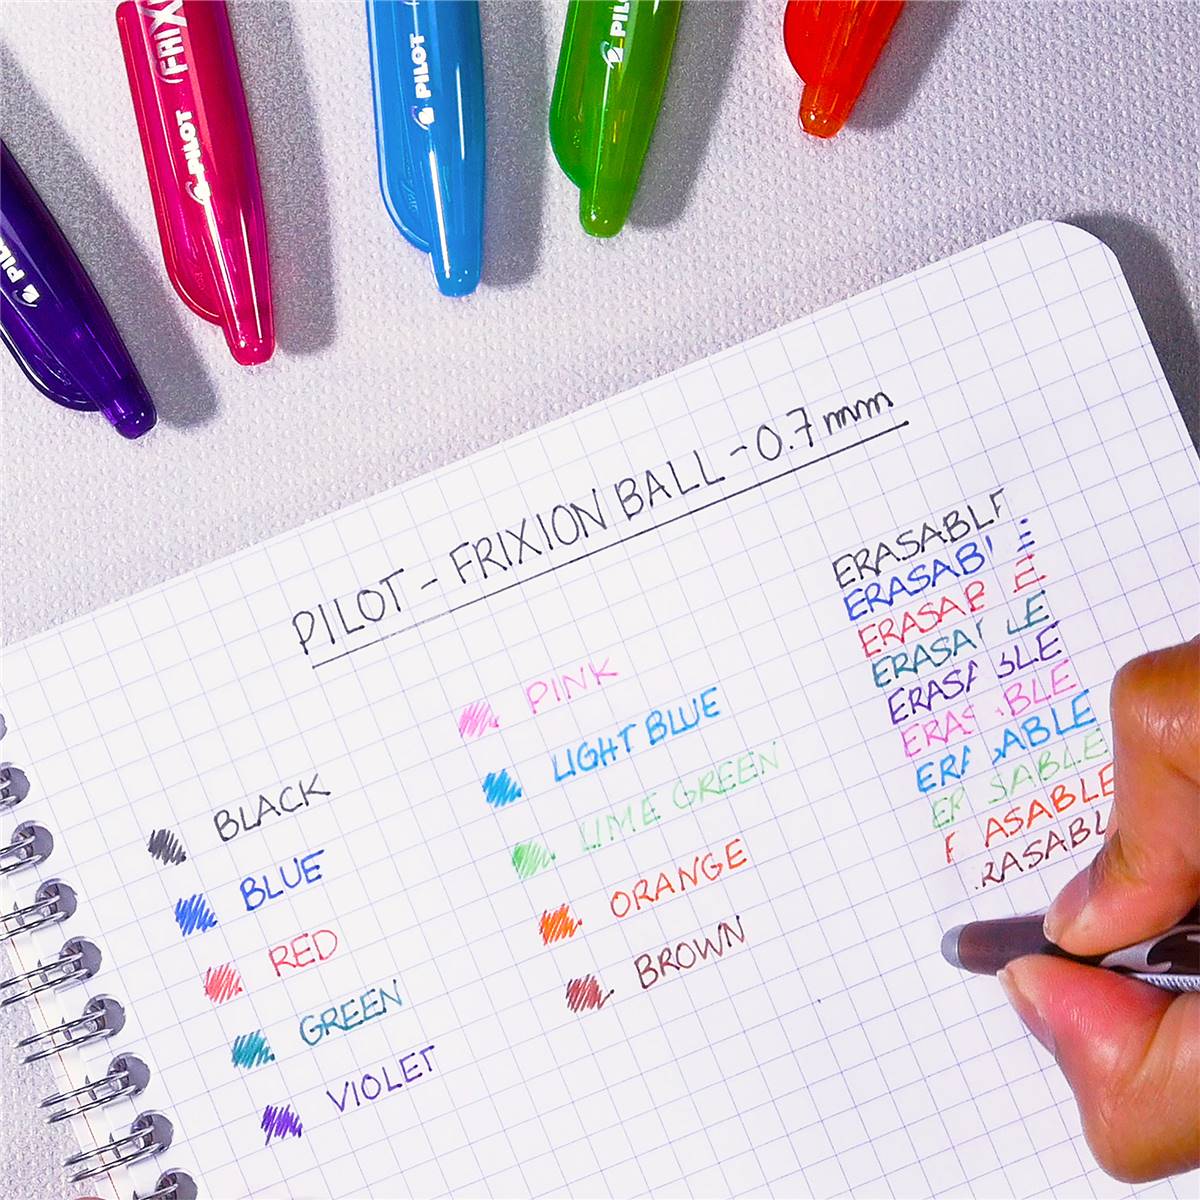 FRIX
PILOT
PILOT
PILOT
PILOT - FRIXION BALL - 0.7 mm
BLACK
BLUE
RED
GREEN
VIOLET
PINK
LIGHT BLUE
LIME GREEN
ORANGE
BROWN
ERASABLE
ERASAB E
ERASAB E
ERASA LE
ERASA BLE
ERAS BLE
ERA ABLE
ER SABLE
E ASABLE
RASABL